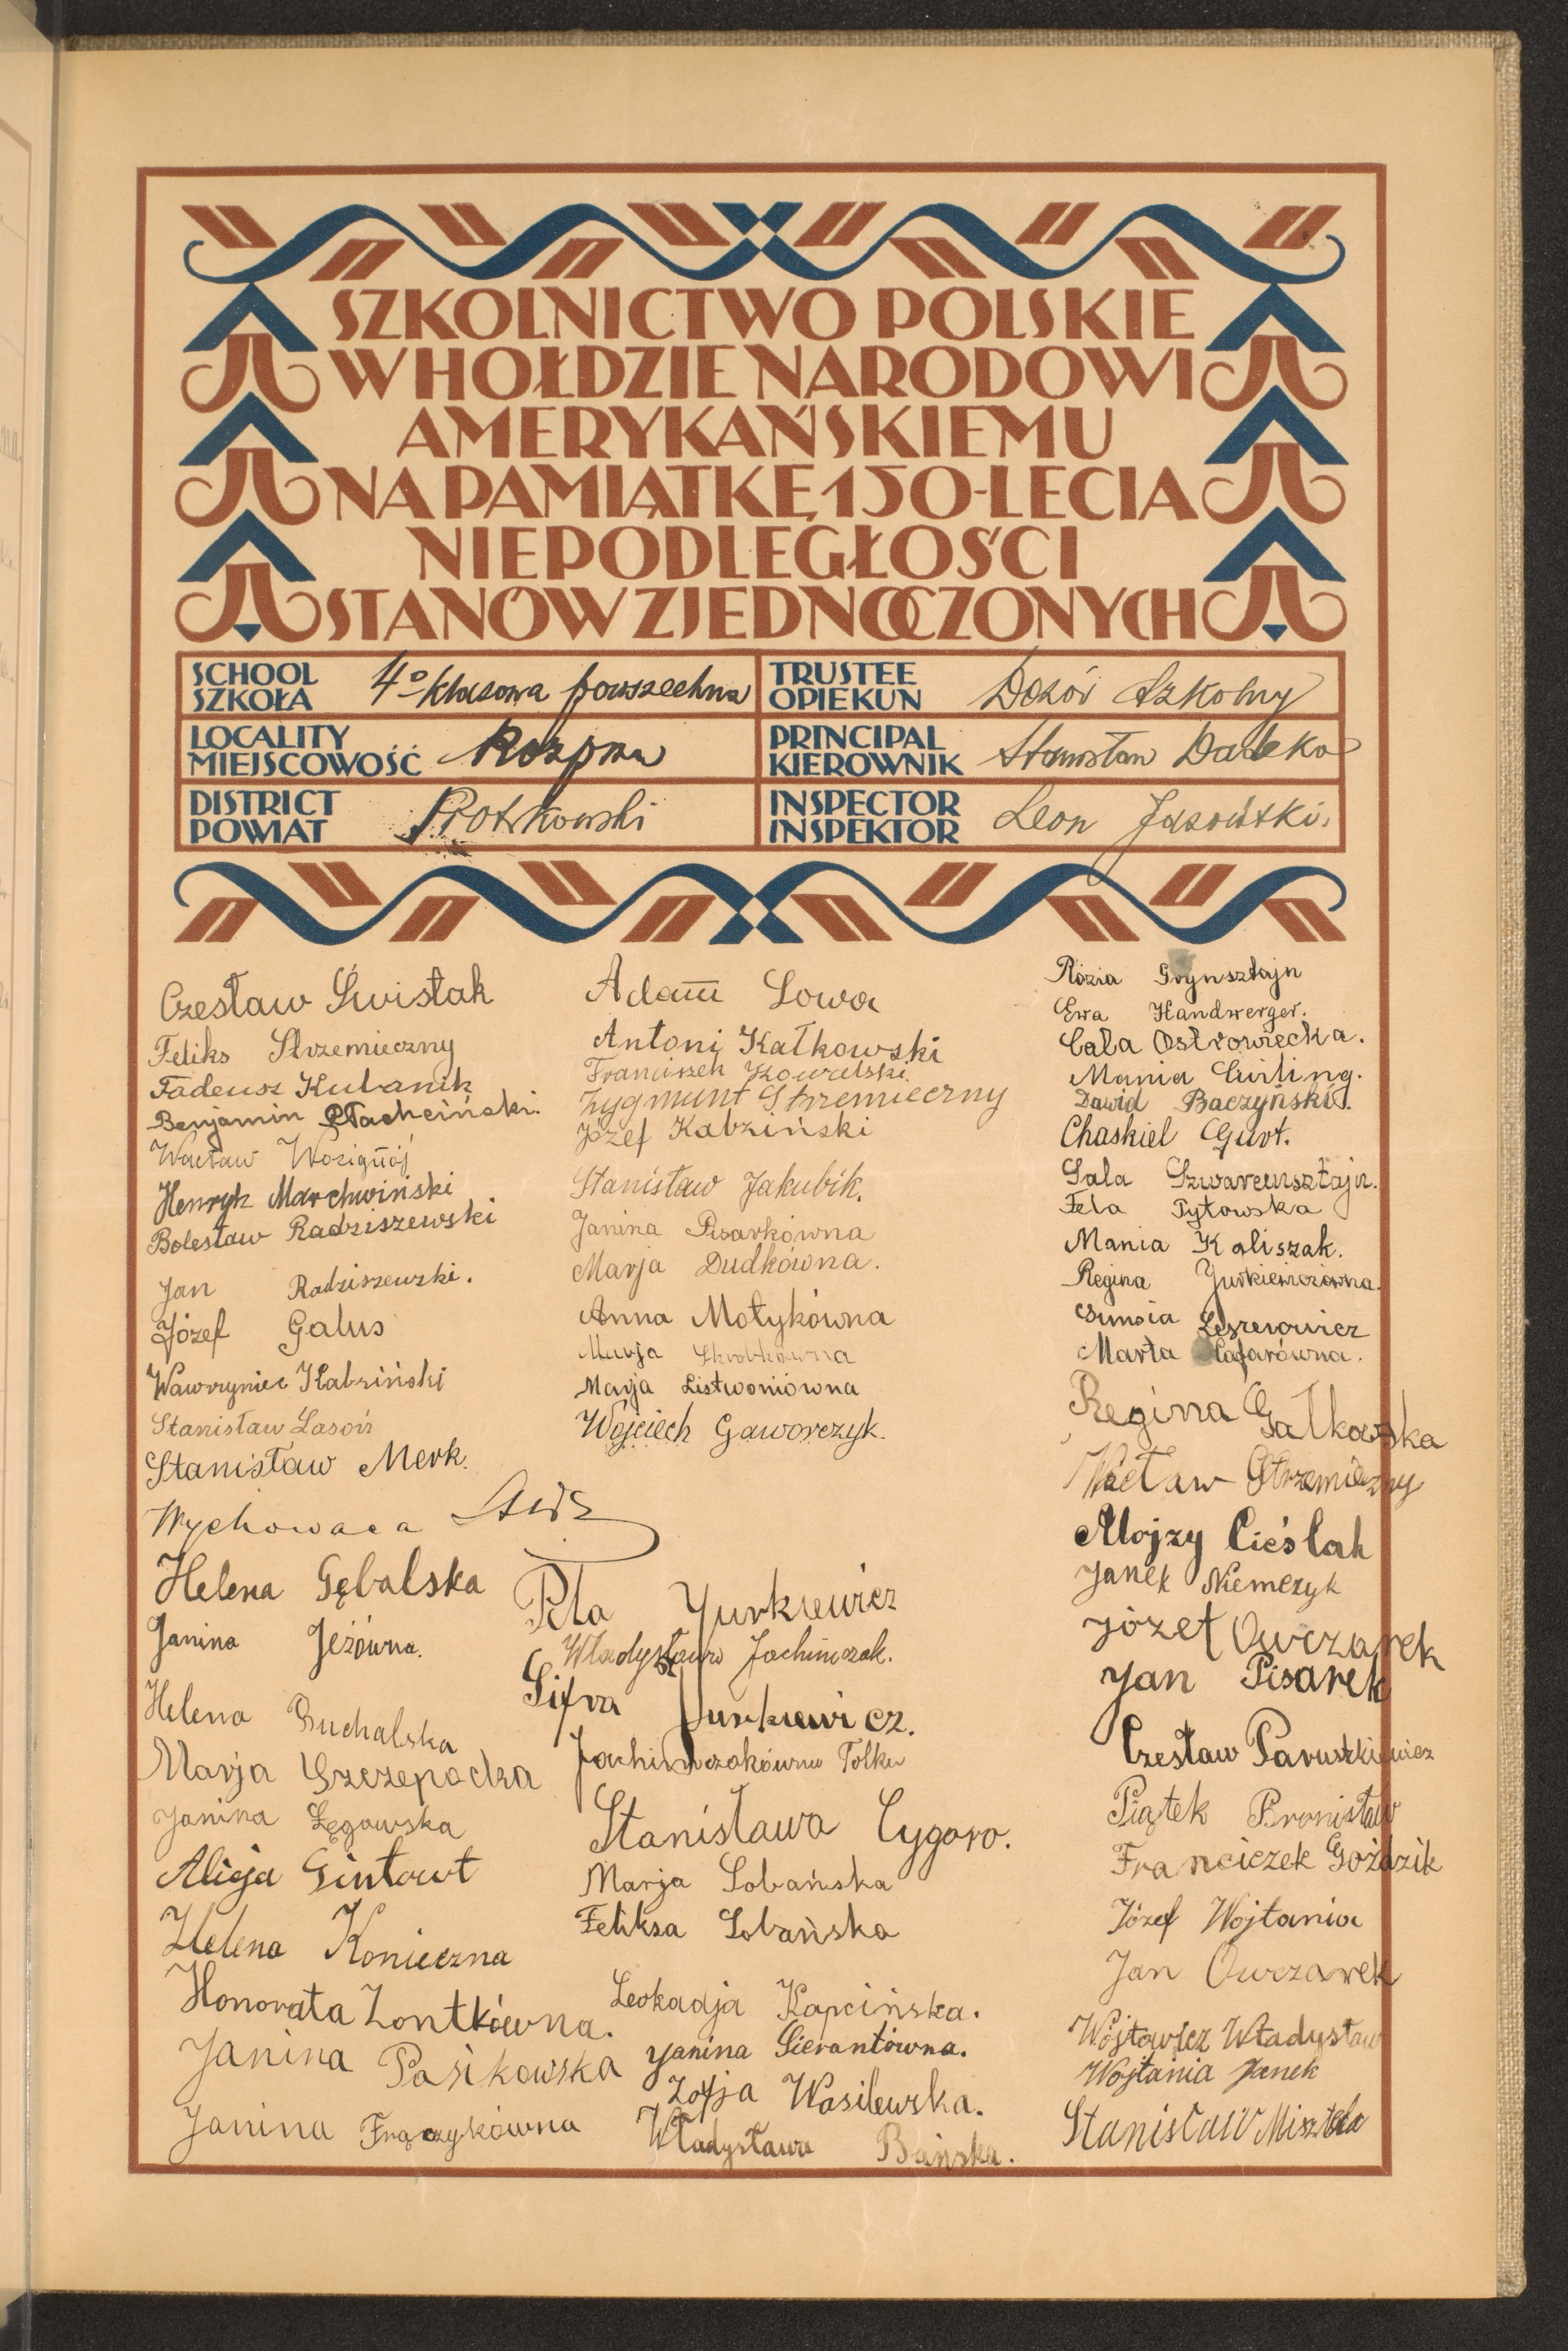 SZKOLNICTWO POLSKIE
W HOŁDZIE NARODOWI
AMERYKAŃSKIEMU
NA PAMIĄTKĘ 150-LECIA
NIEPODLEGŁOŚCI
STANÓW ZJEDNOCZONYCH
SCHOOL
SZKOŁA
4º klasowa powszechna
TRUSTEE
OPIEKUN
Dozór Szkolny
LOCALITY
MIEJSCOWOŚĆ
Rozprza
PRINCIPAL
KIEROWNIK
Stanisław
DISTRICT
POWIAT
Piotrkowski
INSPECTOR
INSPEKTOR
Leon
Czesław Świstak
Feliks Strzemieczny
Tadeusz Kubanik
Benjamin Płachciński.
Wacław
Henryk Marchwiński
Bolesław Radziszewski
Jan Radziszewski.
Józef Galus
Wawrzyniec Kabziński
Stanisław Lasoń
Stanisław Merk.
Wychowaca
Helena Gębalska
Janina Jeżówna.
Helena Suchalska
Marja Szczepocka
Janina Łęgowska
Alicja Gintowt
Helena Konieczna
Honorata Zontkówna.
Janina Pasikowska
Janina Frączykówna
Adam Sowa
Antoni Kałkowski
Franciszek Kowalski.
Zygmunt Strzemieczny
Józef Kabziński
Stanisław Jakubik.
Janina Pisarkówna
Marja Dudkówna.
Anna Motykówna
Marja
Marja Listwoniówna
Wojciech Gaworczyk.
Pela Jurkiewicz
Władysław Jochimczak.
Sifra Jurkiewicz.
Jochimczakówna
Stanisława Cygoro.
Marja Sobańska
Feliksa Sobańska
Leokadja Kapcińska.
Janina Sierantówna.
Zofja Wasilewska.
Władysława Bańska.
Rózia Grynsztajn
Ewa Handwerger.
Cala Ostrowiecka.
Mania
Dawid Baczyński.
Chaskiel Gurt.
Sala Szwarcnsztajn.
Fela Tytowska
Mania Kaliszak.
Regina Jurkiewiczówna.
Leszrowicz
Marta
Regina Gałkowska
Wacław Strzemieczny
Alojzy Cieślak
Janek Niemczyk
Józef Owczarek
Jan Pisarek
Czesław Paruszkiewicz
Piątek Bronisław
Franciczek Goździk
Józef Wojtania
Jan Owczarek
Wójtowicz Władysław
Wojtania Janek
Stanisław Misztela